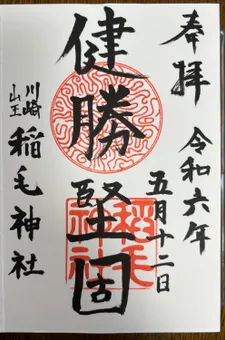 奉拝
令和六年
五月十二日
健勝
堅固
川崎
山王
稲毛神社
稲毛
神社